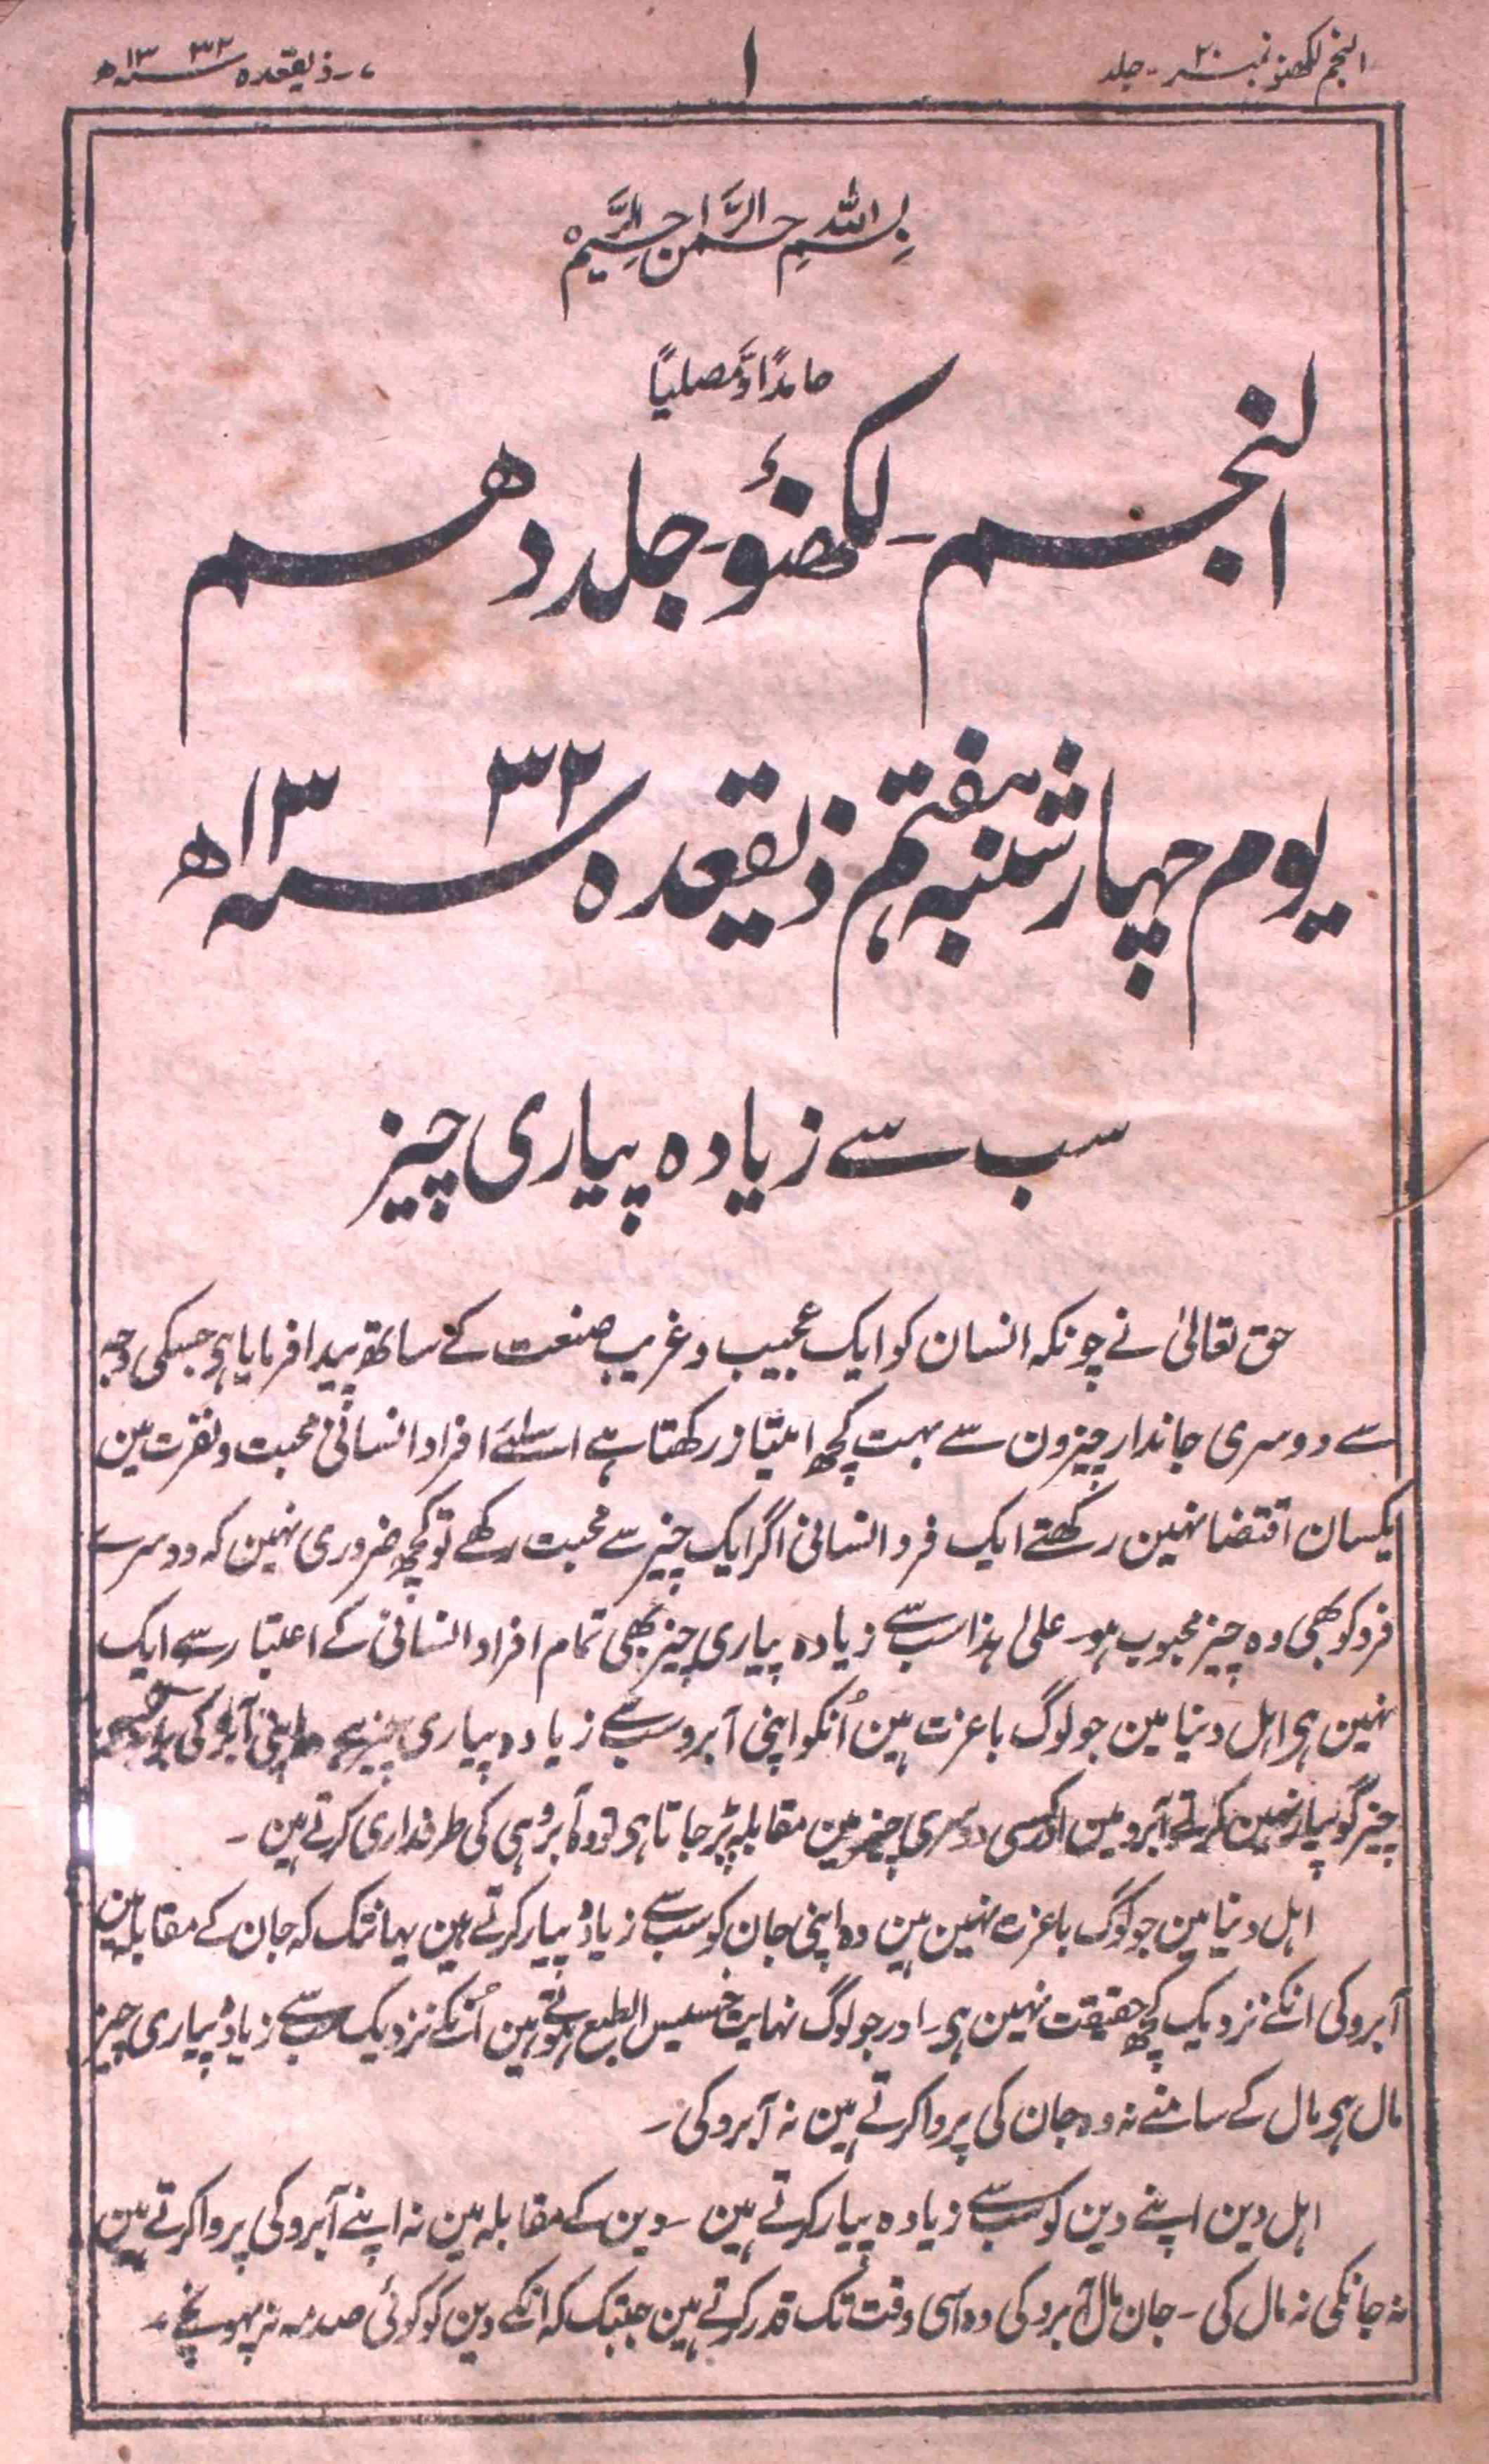 النجم لکھنؤ نمبر ۲۰ - جلد
۱
۷ - ذیقعدہ ۱۳۳۲ھ
بِسْمِ اللہِ الرَّحْمٰنِ الرَّحِیْمِ
حامدًا وَّمصلیاً
النجم - لکھنؤ - جلد دھم
یوم چہارشنبہ ہفتم ذیقعدہ سنہ ۱۳۳۲ھ
سب سے زیادہ پیاری چیز
حق تعالیٰ نے چونکہ انسان کو ایک عجیب و غریب صنعت کے ساتھ پیدا فرمایا ہی جسکی وجہ
سے دوسری جاندار چیزون سے بہت کچھ امتیاز رکھتا ہے اسلئے افراد انسانی محبت و نفرت مین
یکسان اقتضا نہین رکھتے ایک فرد انسانی اگر ایک چیز سے محبت رکھے تو کچھ ضروری نہین کہ دوسرے
فرد کو بھی وہ چیز محبوب ہو۔ علی ہذا سب سے زیادہ پیاری چیز بھی تمام افراد انسانی کے اعتبار سے ایک
نہین ہی اہل دنیا مین جو لوگ باعزت ہین اُنکو اپنی آبرو سب سے زیادہ پیاری چیز ہے وہ اپنی آبرو کی برابر کسی
چیز کو پیار نہین کرتے آبرو مین اور کسی دوسری چیز مین مقابلہ پڑ جاتا ہی تو وہ آبرو ہی کی طرفداری کرتے ہین -
اہل دنیا مین جو لوگ باعزت نہین ہین وہ اپنی جان کو سب سے زیادہ پیار کرتے ہین یہانتک کہ جان کے مقابلہ مین
آبرو کی انکے نزدیک کچھ حقیقت نہین ہی۔ اور جو لوگ نہایت خسیس الطبع ہوتے ہین اُنکے نزدیک سب سے زیادہ پیاری چیز
مال ہی مال کے سامنے نہ وہ جان کی پروا کرتے ہین نہ آبرو کی -
اہل دین اپنے دین کو سب سے زیادہ پیار کرتے ہین - دین کے مقابلہ مین نہ اپنے آبرو کی پروا کرتے ہین
نہ جانکی نہ مال کی - جان مال آبرو کی وہ اسی وقت تک قدر کرتے ہین جبتک کہ انکے دین کو کوئی صدمہ نہ پہونچے -